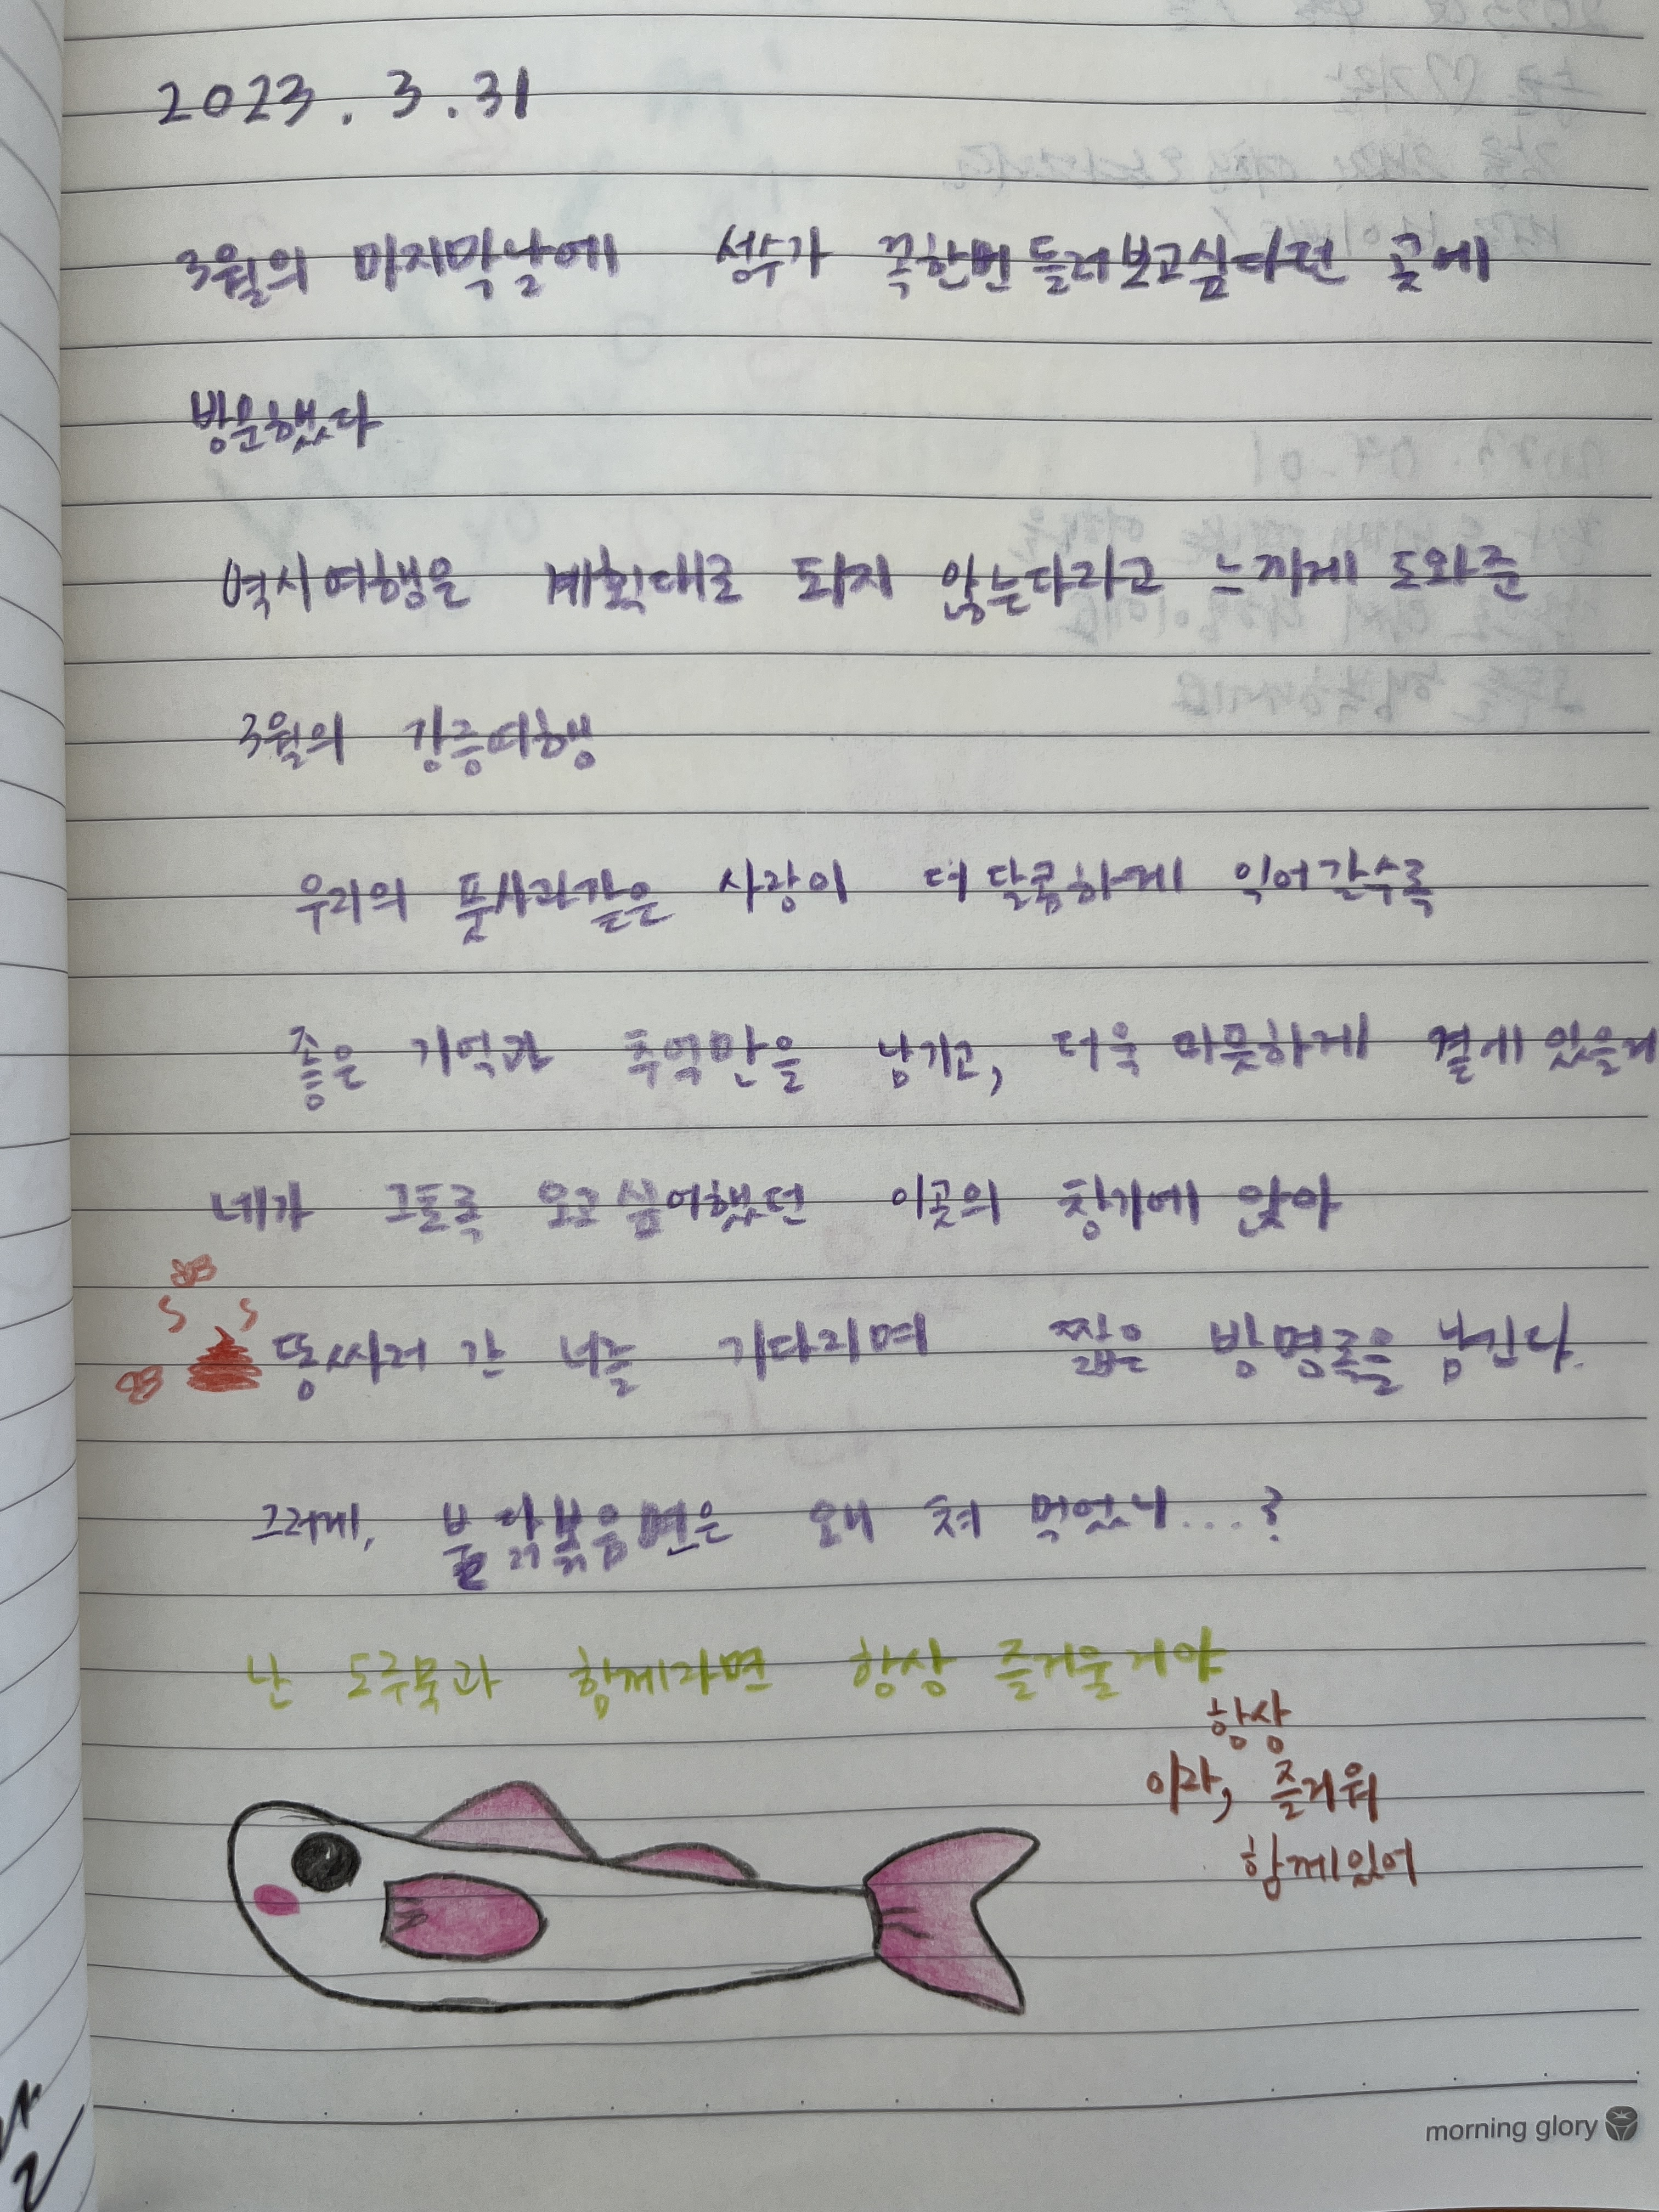 2023. 3. 31
3월의 마지막날에 성수가 꼭한번들러보고싶다던 곳에
방문했다
역시여행은 계획대로 되지 않는다라고 느끼게 도와준
3월의 강릉여행
우리의 풋사과같은 사랑이 더 달콤하게 익어갈수록
좋은 기억과 추억만을 남기고, 더욱 따뜻하게 곁에 있을게
네가 그토록 오고싶어했던 이곳의 창가에 앉아
똥싸러 간 너를 기다리며 짧은 방명록을 남긴다.
그러게, 불닭볶음면은 왜 쳐 먹었니....?
난 도루묵과 함께라면 항상 즐거울거야
항상
이라, 즐거워
함께있어
morning glory